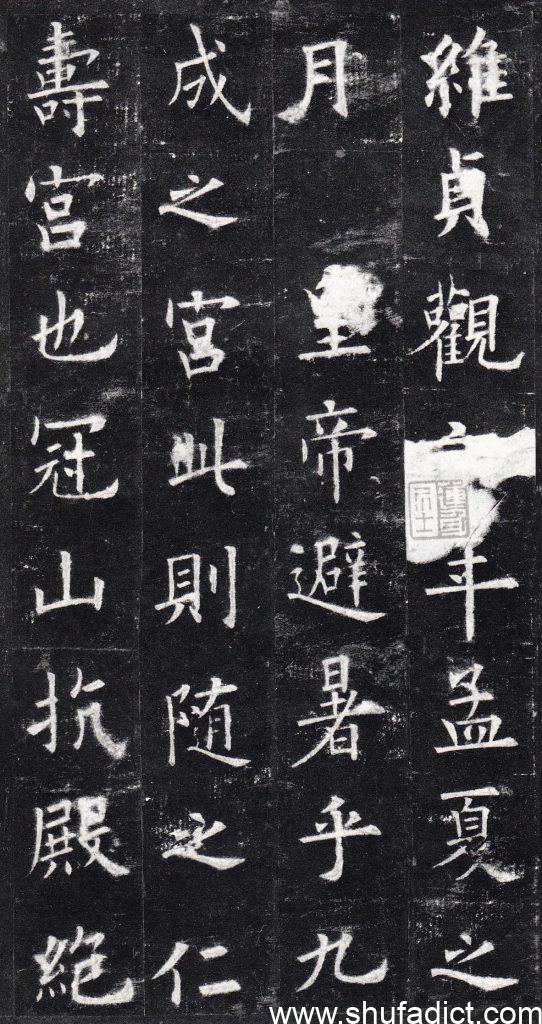 維貞觀六年孟夏之
月皇帝避暑乎九
成之宮此則随之仁
壽宮也冠山抗殿絶
www.shufadict.com